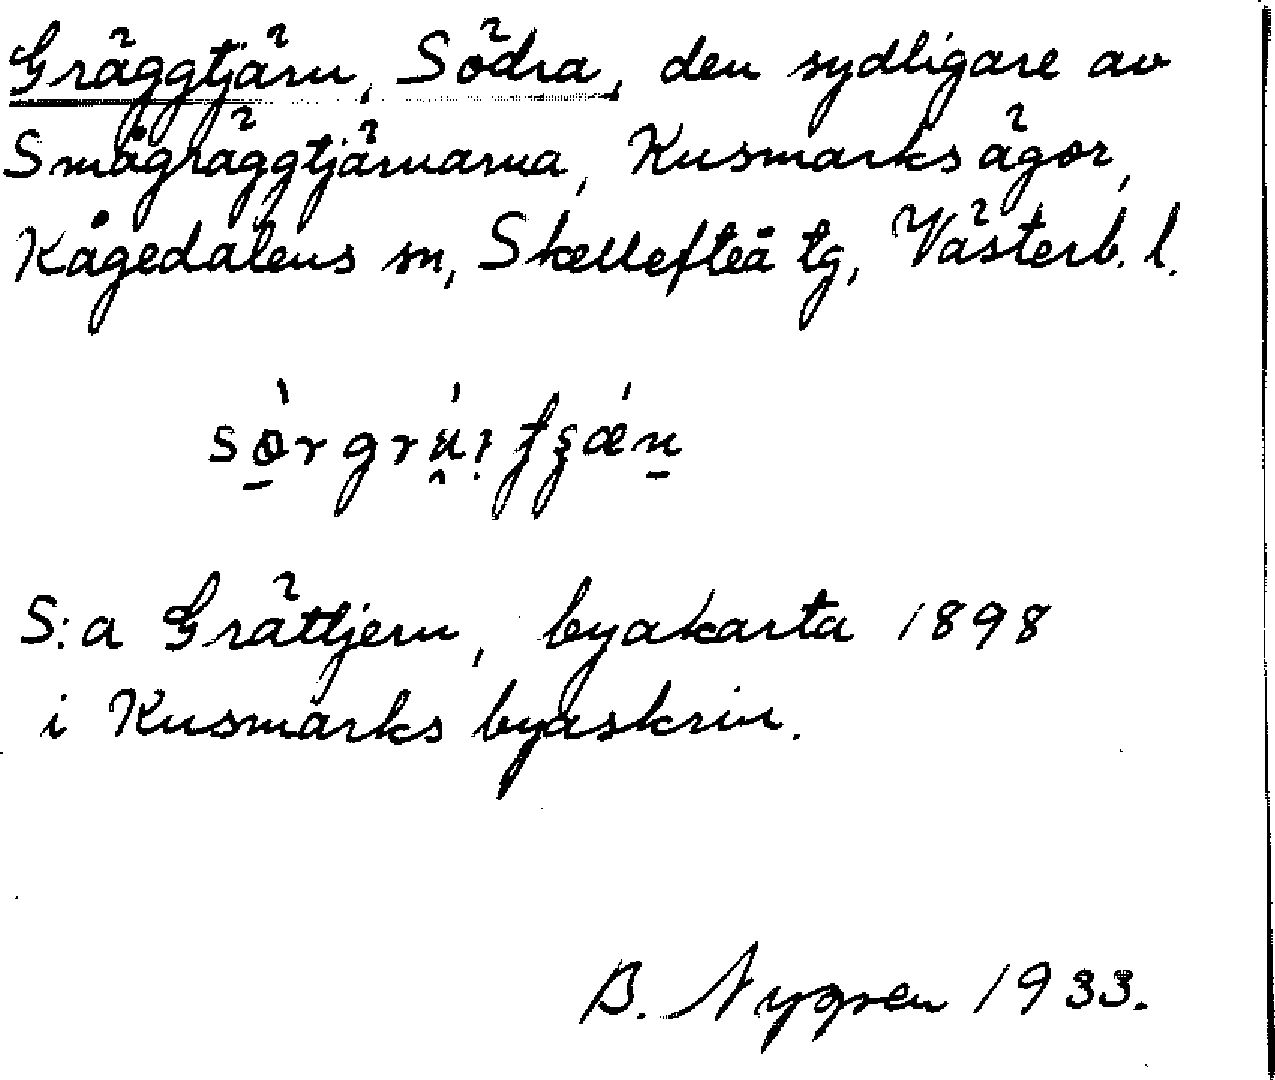 Gräggtjärn, Södra, den sydligare av
Smågräggtjärnarna, Kusmarks ägor,
Kågedalens sn, Skellefteå tg, Västerb. l.
S:a Grättjern, byakarta 1898
i Kusmarks byaskrin.
B. Nygren 1933.